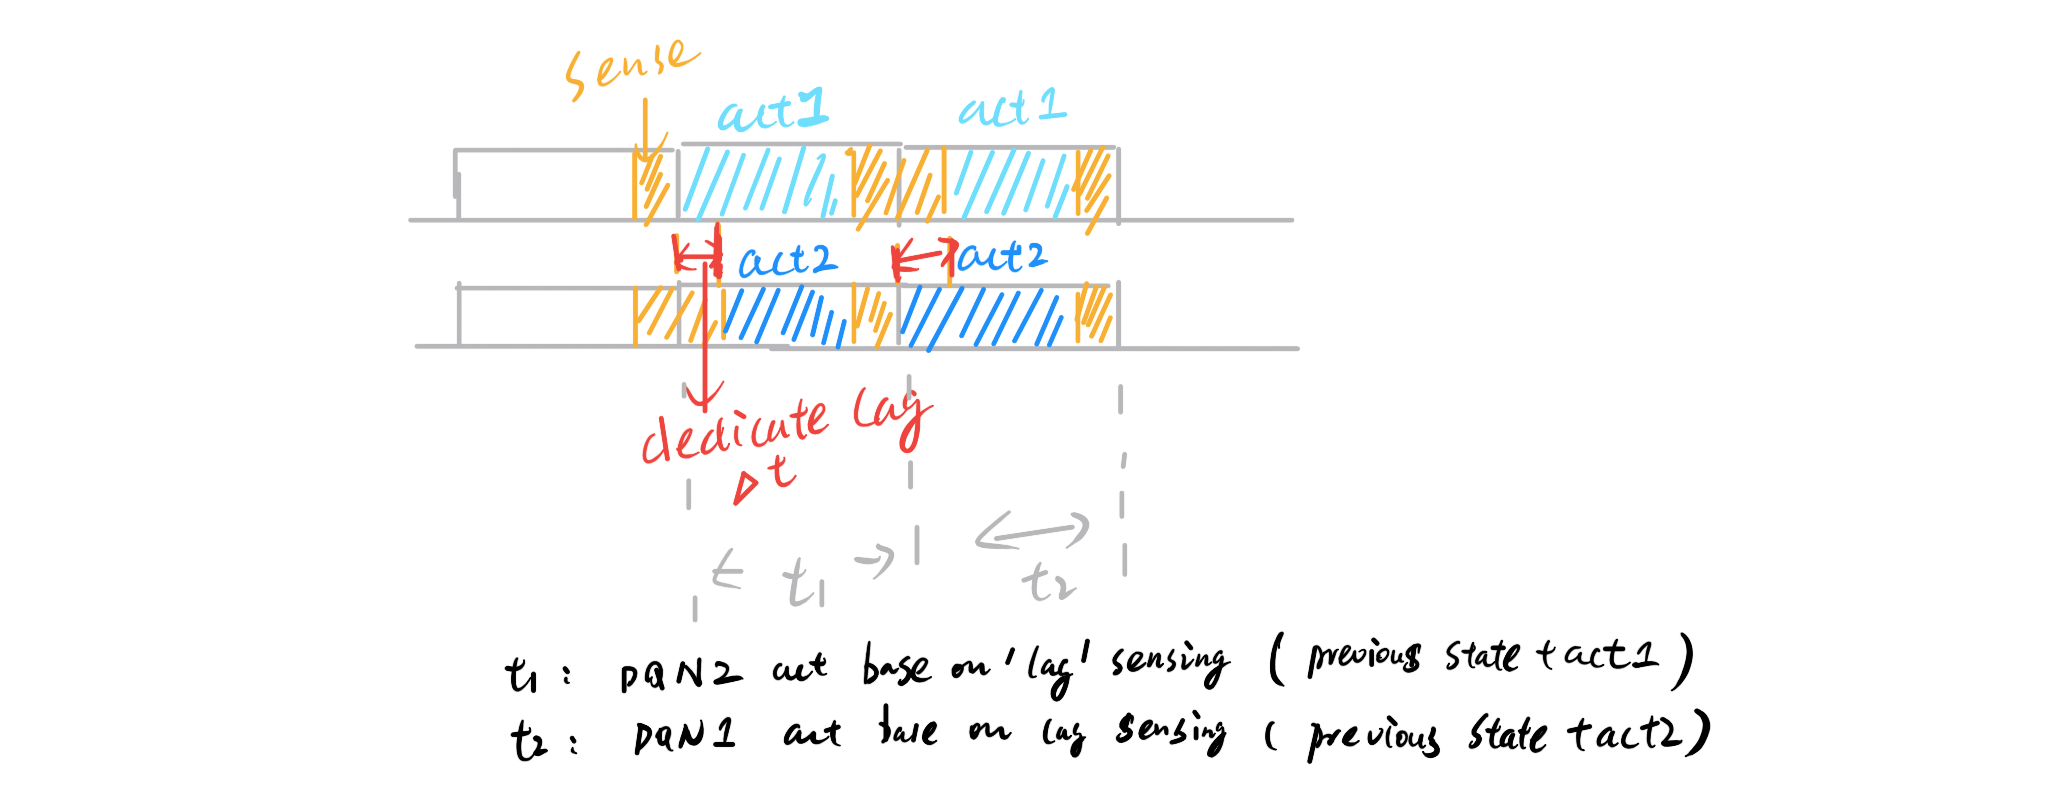 sense
act1 act1
act2 act2
dedicate lag
Δt
t1 t2
t1 : DQN2 act base on 'lag' sensing ( previous state + act1 )
t2 : DQN1 act base on lag sensing ( previous state + act2 )